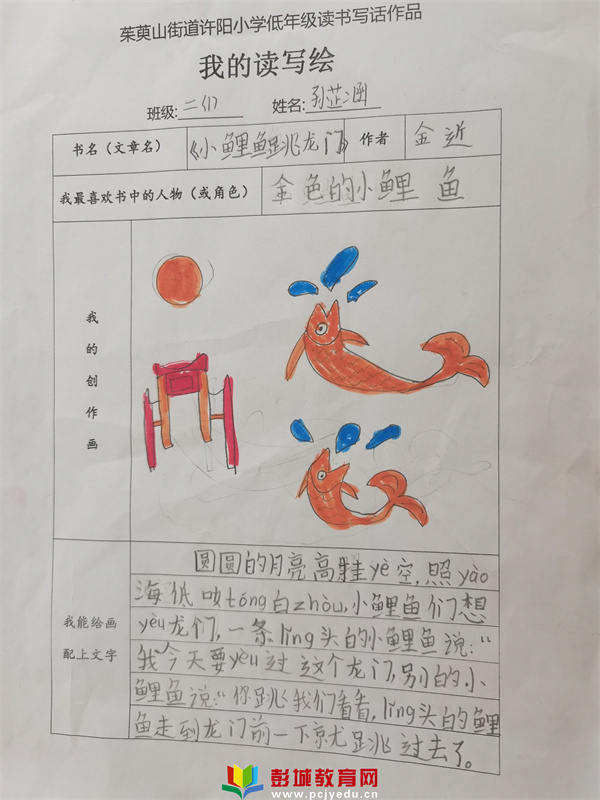 茱萸山街道许阳小学低年级读书写话作品
我的读写绘
班级: 二(1) 姓名: 孙芷涵
书名（文章名） 《小鲤鱼跳龙门》 作者 金近
我最喜欢书中的人物（或角色） 金色的小鲤鱼
我的创作画
我能绘画
配上文字
圆圆的月亮高挂yè空,照yào
海低咬tóng白zhòu,小鲤鱼们想
yèu龙们,一条lǐng头的小鲤鱼说:“
我今天要yèu过这个龙门,别的小
鲤鱼说:“你跳我们看看,lǐng头的鲤
鱼走到龙门前一下就跳过去了。
彭城教育网
www.pcjyedu.cn